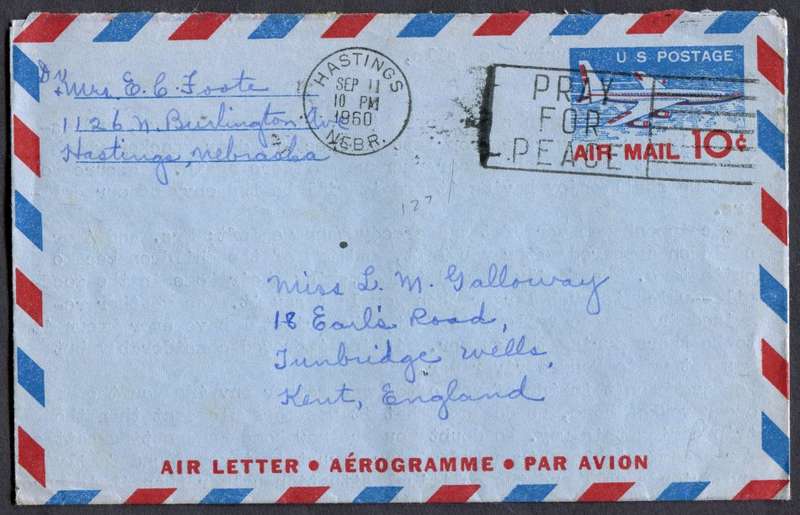 Mrs E. C. Foote
1126 N. Burlington Ave
Hastings, Nebraska
HASTINGS
SEP 11
10 PM
1960
NEBR.
U S POSTAGE
PRAY
FOR
PEACE
AIR MAIL 10¢
127
Miss L. M. Galloway
18 Earl's Road,
Tunbridge Wells,
Kent, England
AIR LETTER • AÉROGRAMME • PAR AVION